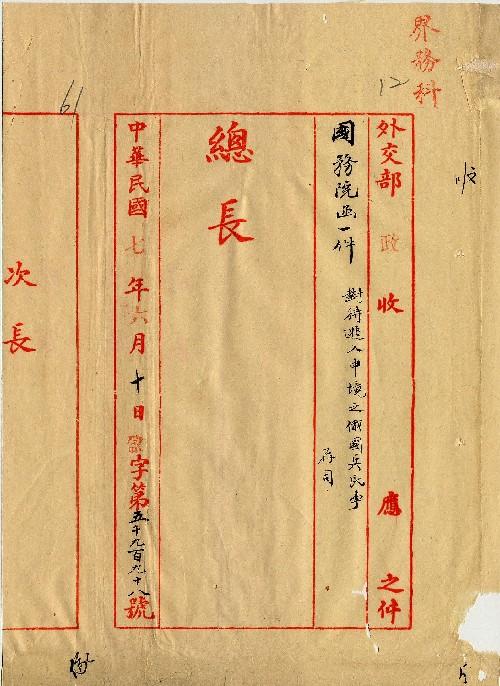 界務科
12
收文
外交部 政 收 應 之件
國務院函一件
對待進入中境之俄國兵民事
存司
總長
中華民國七年六月十日盈字第五千九百九十八號
61
次長